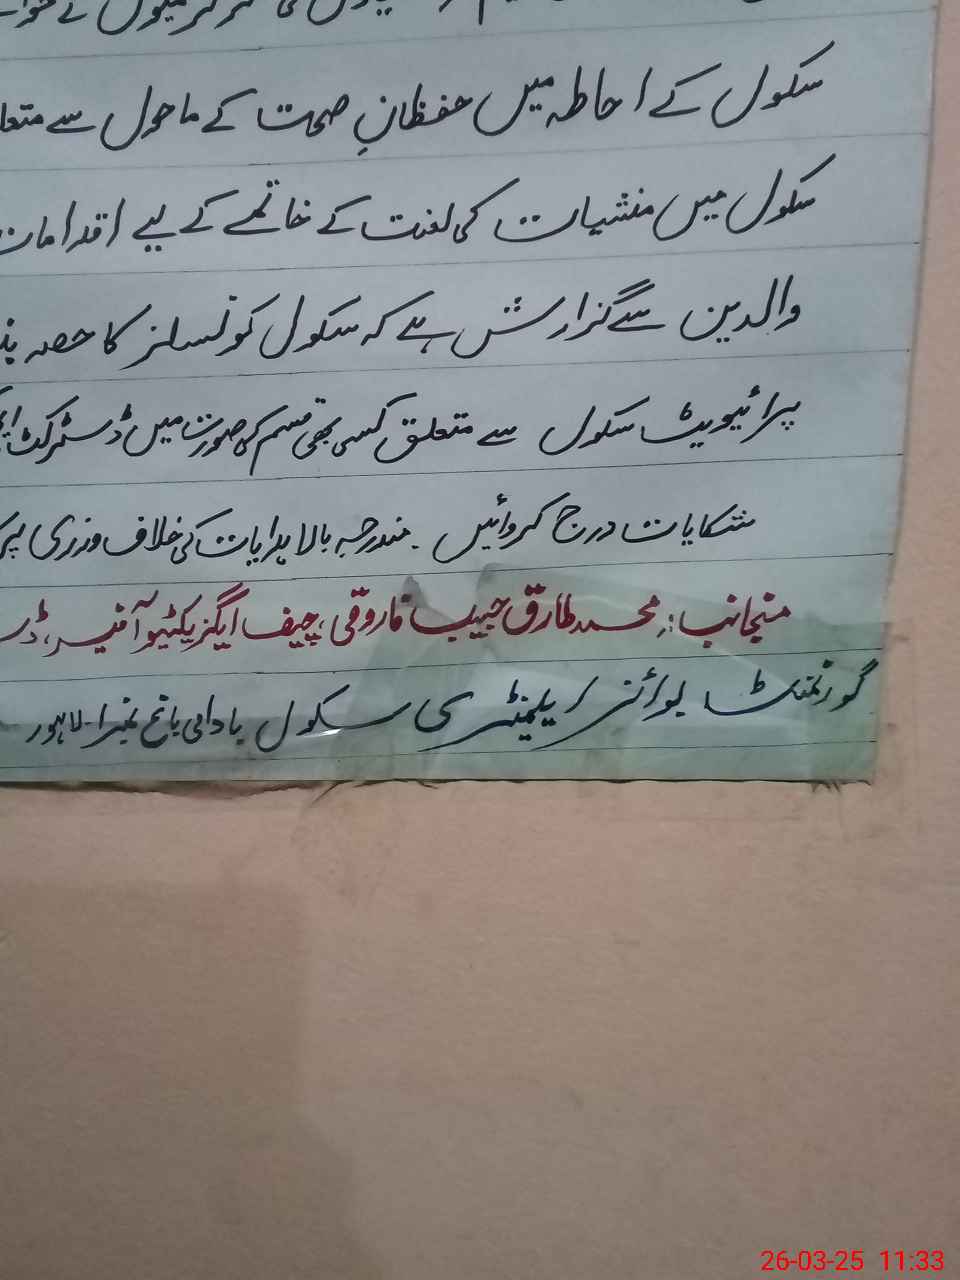 سکول کے احاطہ میں حفظانِ صحت کے ماحول سے متعلق
سکول میں منشیات کی لعنت کے خاتمے کے لیے اقدامات
والدین سے گزارش ہے کہ سکول کونسلز کا حصہ
پرائیویٹ سکول سے متعلق کسی بھی قسم کی صورت میں ڈسٹرکٹ
شکایات درج کروائیں۔ مندرجہ بالا ہدایات کی خلاف ورزی پر
منجانب: محمد طارق حبیب فاروقی، چیف ایگزیکٹیو آفیسر،
گورنمنٹ بوائز ایلیمنٹری سکول بادامی باغ نمبر1۔لاہور
26-03-25 11:33